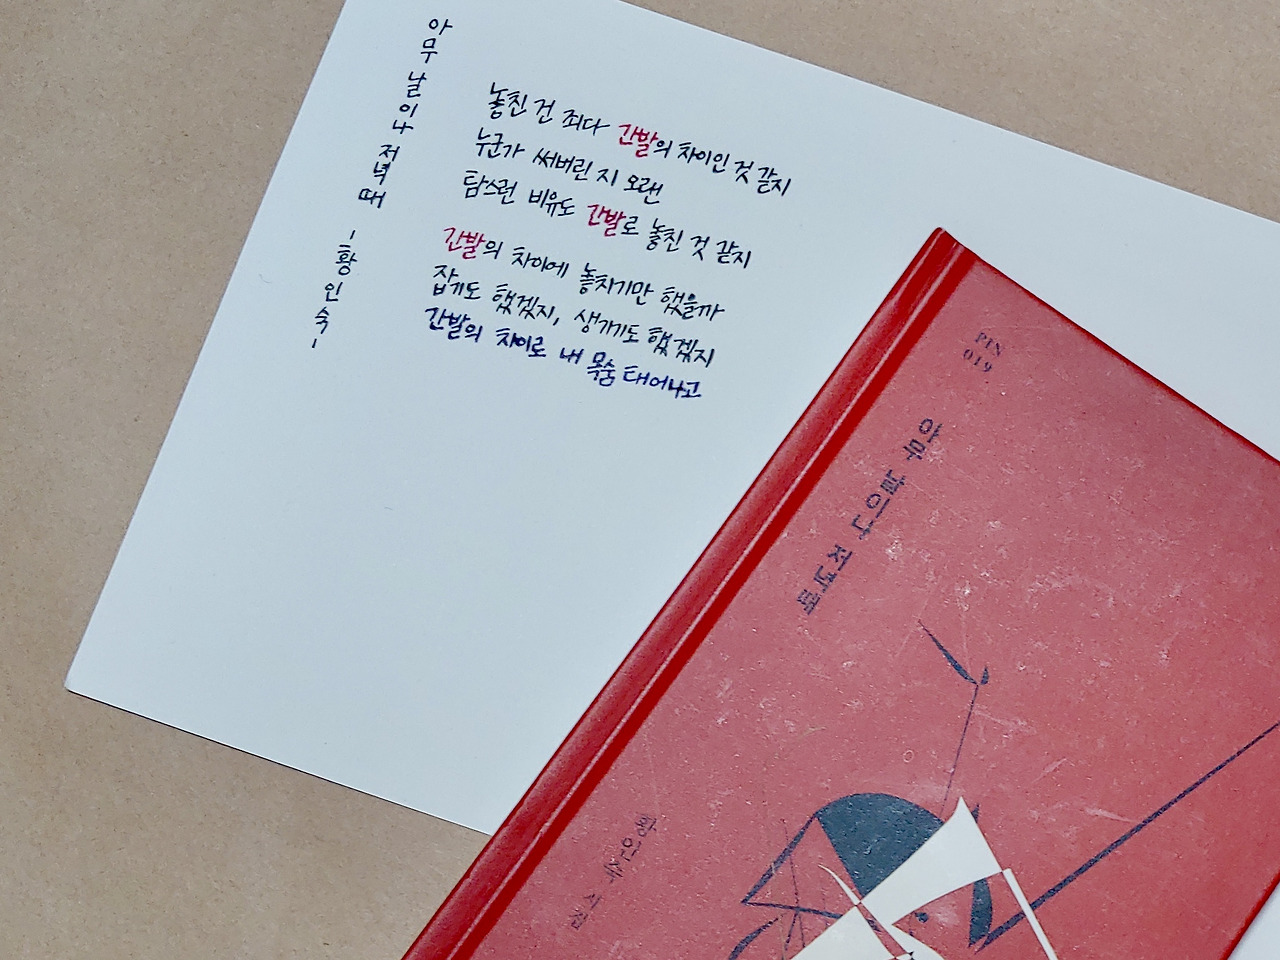 아무 날이나 저녁때
-황인숙-
놓친 건 죄다 간발의 차이인 것 같지
누군가 써버린 지 오랜
탐스런 비유도 간발로 놓친 것 같지
간발의 차이에 놓치기만 했을까
잡기도 했겠지, 생기기도 했겠지
간발의 차이로 내 목숨 태어나고
PIN
019
아무 날이나 저녁때
황인숙 시집